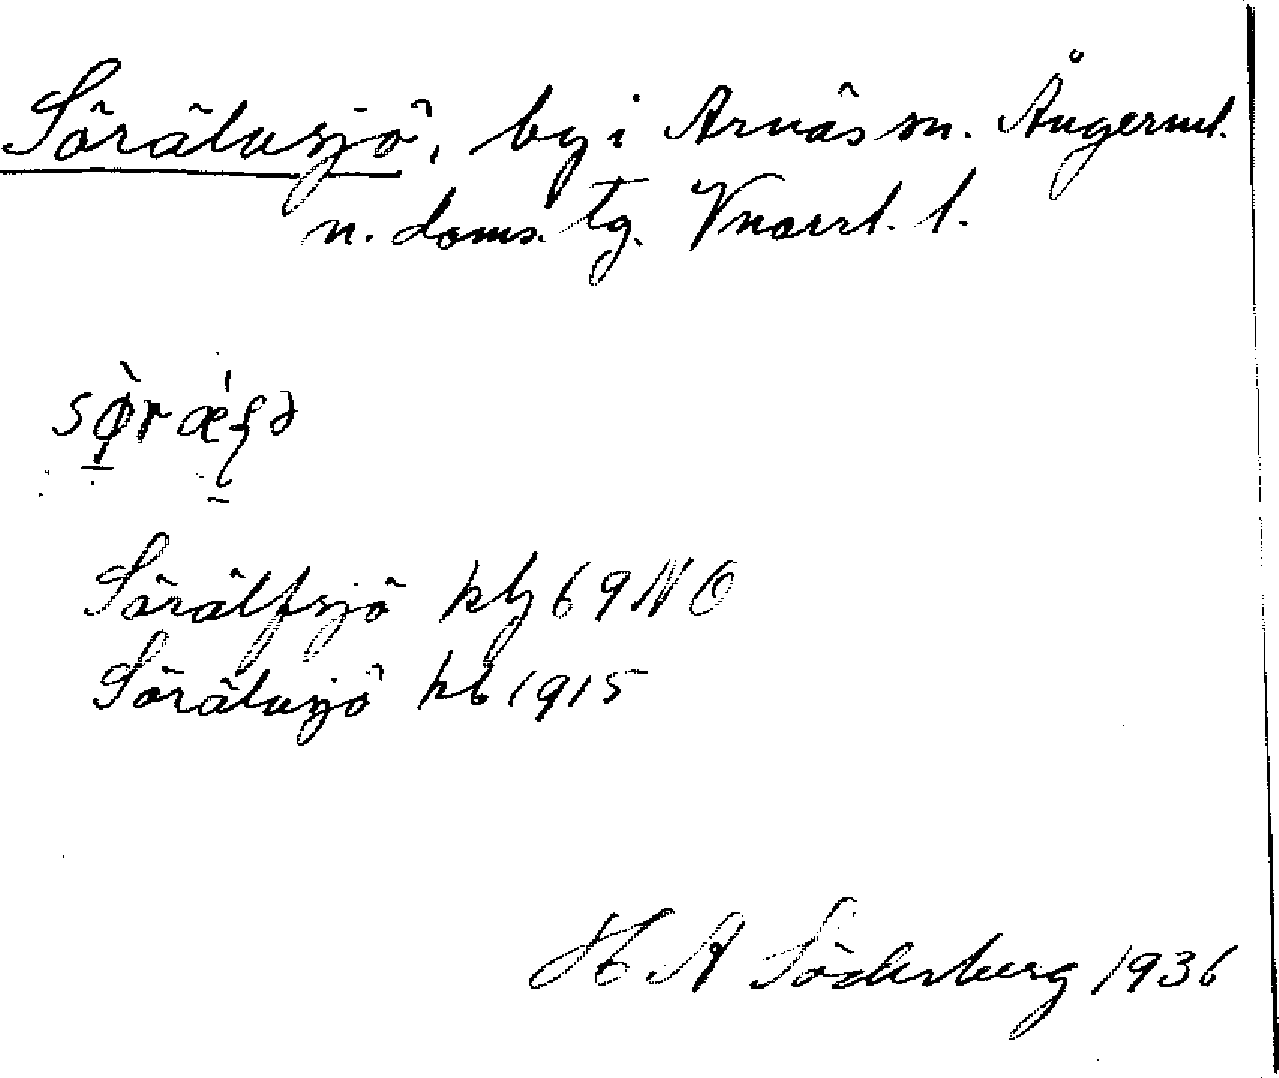 Sörälvsjö, by i Arnäs sn. Ångerml.
n. doms. tg. Vnorrl. l.
Sörälfsjö kbl 69 NO
Sörälvsjö kb 1915
H A Söderberg 1936